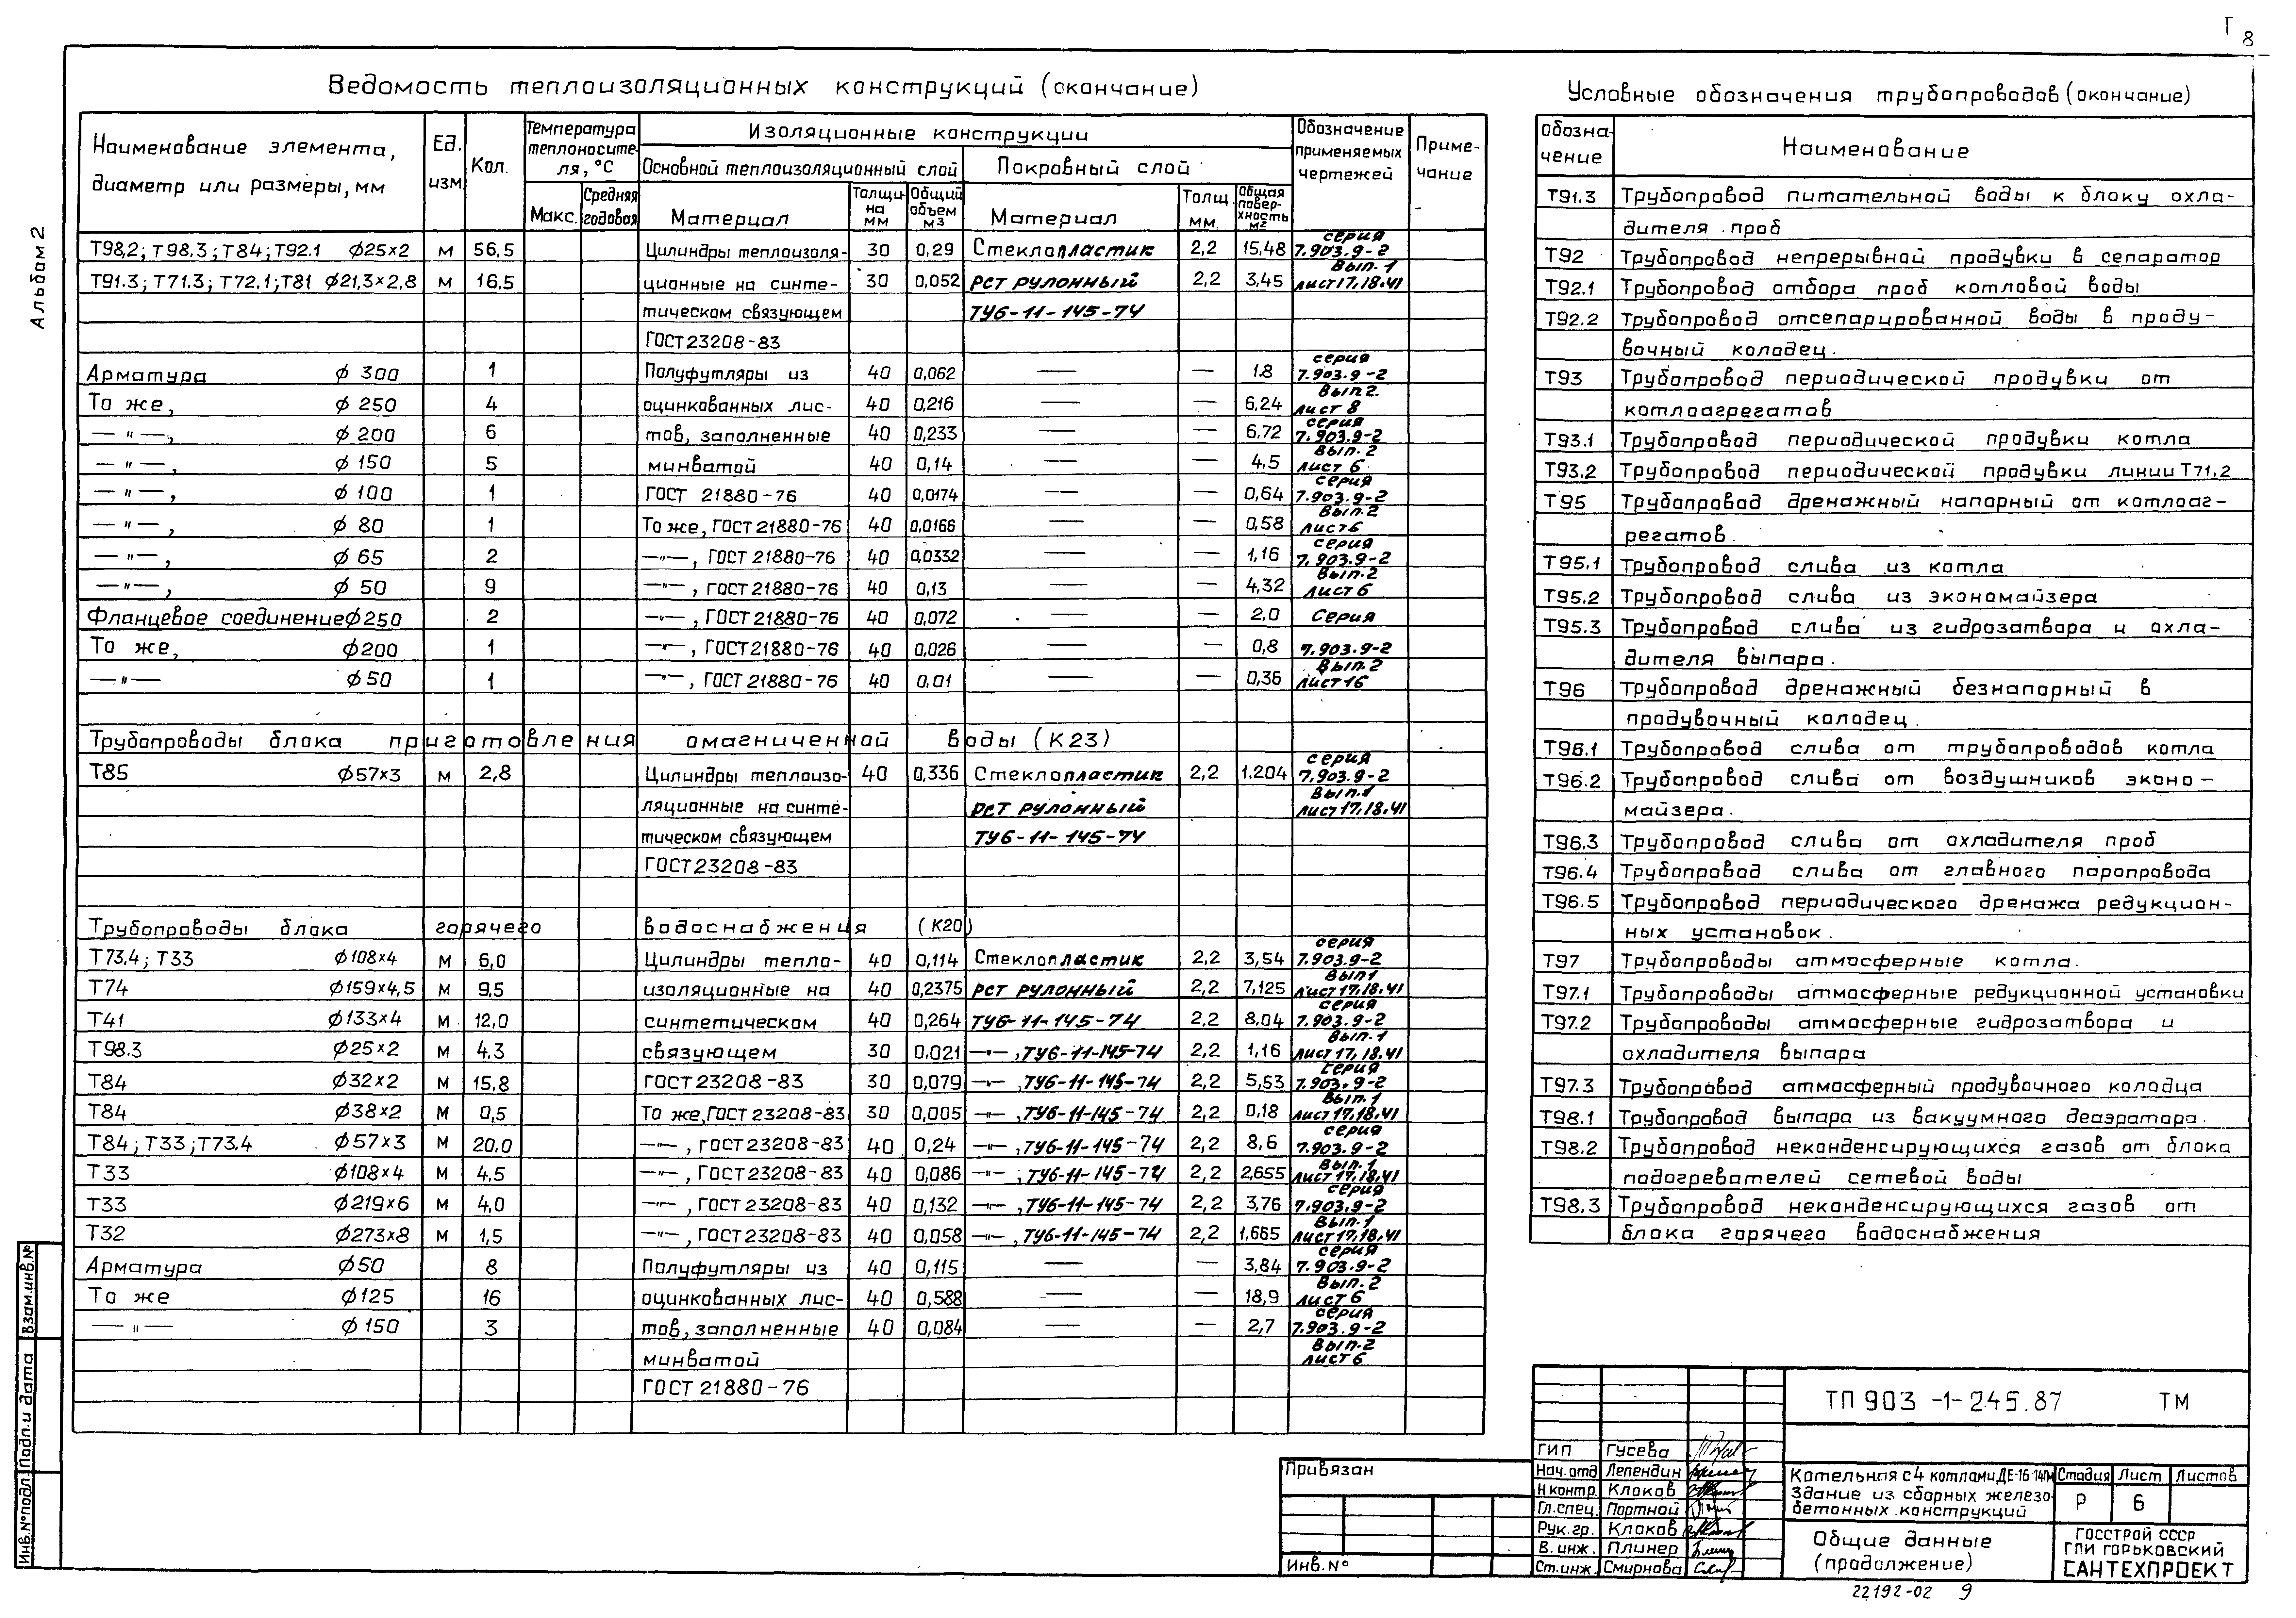 Т 8
Альбом 2
Ведомость теплоизоляционных конструкций (окончание)
Наименование элемента, диаметр или размеры, мм | Ед. изм. | Кол. | Температура теплоносителя, °С | Изоляционные конструкции | Обозначение применяемых чертежей | Примечание
Основной теплоизоляционный слой | Покровный слой
Макс. | Средняя годовая | Материал | Толщина мм | Общий объем м3 | Материал | Толщ. мм. | Общая поверхность м2
Т98,2; Т98.3; Т84; Т92.1 ф25×2 м 56,5 Цилиндры теплоизоля- 30 0,29 Стеклопластик 2,2 15,48 серия 7.903.9-2
Т91.3; Т71.3; Т72.1; Т81 ф21,3×2,8 м 16,5 ционные на синте- 30 0,052 РСТ рулонный 2,2 3,45 Вып. 1 лист 17,18,41
тическом связующем ТУ6-11-145-74
ГОСТ 23208-83
Арматура ф 300 1 Полуфутляры из 40 0,062 — — 1.8 серия 7.903.9-2
То же, ф 250 4 оцинкованных лис- 40 0,216 — — 6,24 Вып 2. лист 8
— " —, ф 200 6 тов, заполненные 40 0,233 — — 6.72 серия 7.903.9-2
— " —, ф 150 5 минватой 40 0,14 — — 4,5 Вып. 2 лист 6
— " —, ф 100 1 ГОСТ 21880-76 40 0,0174 — — 0,64 серия 7.903.9-2
— " —, ф 80 1 То же, ГОСТ 21880-76 40 0,0166 — — 0,58 Вып. 2 лист 6
— " —, ф 65 2 — " —, ГОСТ 21880-76 40 0,0332 — — 1,16 серия 7.903.9-2
— " —, ф 50 9 — " —, ГОСТ 21880-76 40 0,13 — — 4,32 Вып. 2 лист 6
Фланцевое соединение ф250 2 — " —, ГОСТ 21880-76 40 0,072 — — 2,0 Серия
То же, ф200 1 — " —, ГОСТ 21880-76 40 0,026 — — 0,8 7.903.9-2
— " — ф50 1 — " —, ГОСТ 21880-76 40 0,01 — — 0,36 Вып. 2 лист 16
Трубопроводы блока приготовления омагниченной воды (К23)
Т85 ф57×3 м 2,8 Цилиндры теплоизо- 40 0,336 Стеклопластик 2,2 1,204 серия 7.903.9-2
ляционные на синте- РСТ рулонный Вып. 1 лист 17,18,41
тическом связующем ТУ6-11-145-74
ГОСТ 23208-83
Трубопроводы блока горячего водоснабжения (К20)
Т73.4; Т33 ф108×4 м 6,0 Цилиндры тепло- 40 0,114 Стеклопластик 2,2 3,54 серия 7.903.9-2
Т74 ф159×4,5 м 9,5 изоляционные на 40 0,2375 РСТ рулонный 2,2 7,125 Вып 1 лист 17,18,41
Т41 ф133×4 м 12,0 синтетическом 40 0,264 ТУ6-11-145-74 2,2 8,04 серия 7.903.9-2
Т98.3 ф25×2 м 4,3 связующем 30 0,021 — " —, ТУ6-11-145-74 2,2 1,16 Вып. 1 лист 17,18,41
Т84 ф32×2 м 15,8 ГОСТ 23208-83 30 0,079 — " —, ТУ6-11-145-74 2,2 5,53 серия 7.903.9-2
Т84 ф38×2 м 0,5 То же, ГОСТ 23208-83 30 0,005 — " —, ТУ6-11-145-74 2,2 0,18 Вып. 1 лист 17,18,41
Т84; Т33; Т73.4 ф57×3 м 20,0 — " —, ГОСТ 23208-83 40 0,24 — " —, ТУ6-11-145-74 2,2 8,6 серия 7.903.9-2
Т33 ф108×4 м 4,5 — " —, ГОСТ 23208-83 40 0,086 — " —, ТУ6-11-145-74 2,2 2,655 Вып. 1 лист 17,18,41
Т33 ф219×6 м 4,0 — " —, ГОСТ 23208-83 40 0,132 — " —, ТУ6-11-145-74 2,2 3,76 серия 7.903.9-2
Т32 ф273×8 м 1,5 — " —, ГОСТ 23208-83 40 0,058 — " —, ТУ6-11-145-74 2,2 1,665 Вып. 1 лист 17,18,41
Арматура ф50 8 Полуфутляры из 40 0,115 — — 3,84 серия 7.903.9-2
То же ф125 16 оцинкованных лис- 40 0,588 — — 18,9 Вып. 2 лист 6
— " — ф150 3 тов, заполненные 40 0,084 — — 2,7 серия 7.903.9-2
минватой Вып. 2 лист 6
ГОСТ 21880-76
Условные обозначения трубопроводов (окончание)
Обозна-чение | Наименование
Т91.3 Трубопровод питательной воды к блоку охла-
дителя проб
Т92 Трубопровод непрерывной продувки в сепаратор
Т92.1 Трубопровод отбора проб котловой воды
Т92.2 Трубопровод отсепарированной воды в проду-
вочный колодец.
Т93 Трубопровод периодической продувки от
котлоагрегатов
Т93.1 Трубопровод периодической продувки котла
Т93.2 Трубопровод периодической продувки линии Т71.2
Т95 Трубопровод дренажный напорный от котлоаг-
регатов.
Т95.1 Трубопровод слива из котла
Т95.2 Трубопровод слива из экономайзера
Т95.3 Трубопровод слива из гидрозатвора и охла-
дителя выпара.
Т96 Трубопровод дренажный безнапорный в
продувочный колодец.
Т96.1 Трубопровод слива от трубопроводов котла
Т96.2 Трубопровод слива от воздушников эконо-
майзера.
Т96.3 Трубопровод слива от охладителя проб
Т96.4 Трубопровод слива от главного паропровода
Т96.5 Трубопровод периодического дренажа редукцион-
ных установок.
Т97 Трубопроводы атмосферные котла.
Т97.1 Трубопроводы атмосферные редукционной установки
Т97.2 Трубопроводы атмосферные гидрозатвора и
охладителя выпара
Т97.3 Трубопровод атмосферный продувочного колодца
Т98.1 Трубопровод выпара из вакуумного деаэратора.
Т98.2 Трубопровод неконденсирующихся газов от блока
подогревателей сетевой воды
Т98.3 Трубопровод неконденсирующихся газов от
блока горячего водоснабжения
ТП 903-1-245.87 ТМ
ГИП Гусева
Нач. отд Лепендин
Н контр. Клоков
Гл. спец. Портной
Рук. гр. Клоков
В. инж. Плинер
Ст. инж. Смирнова
Котельная с 4 котлами ДЕ-16-14ГМ
Здание из сборных железо-
бетонных конструкций
Стадия Лист Листов
Р 6
Общие данные
(продолжение)
ГОССТРОЙ СССР
ГПИ ГОРЬКОВСКИЙ
САНТЕХПРОЕКТ
Привязан
Инв. №
Инв. № подл. Подп. и дата Взам. инв. №
22192-02 9